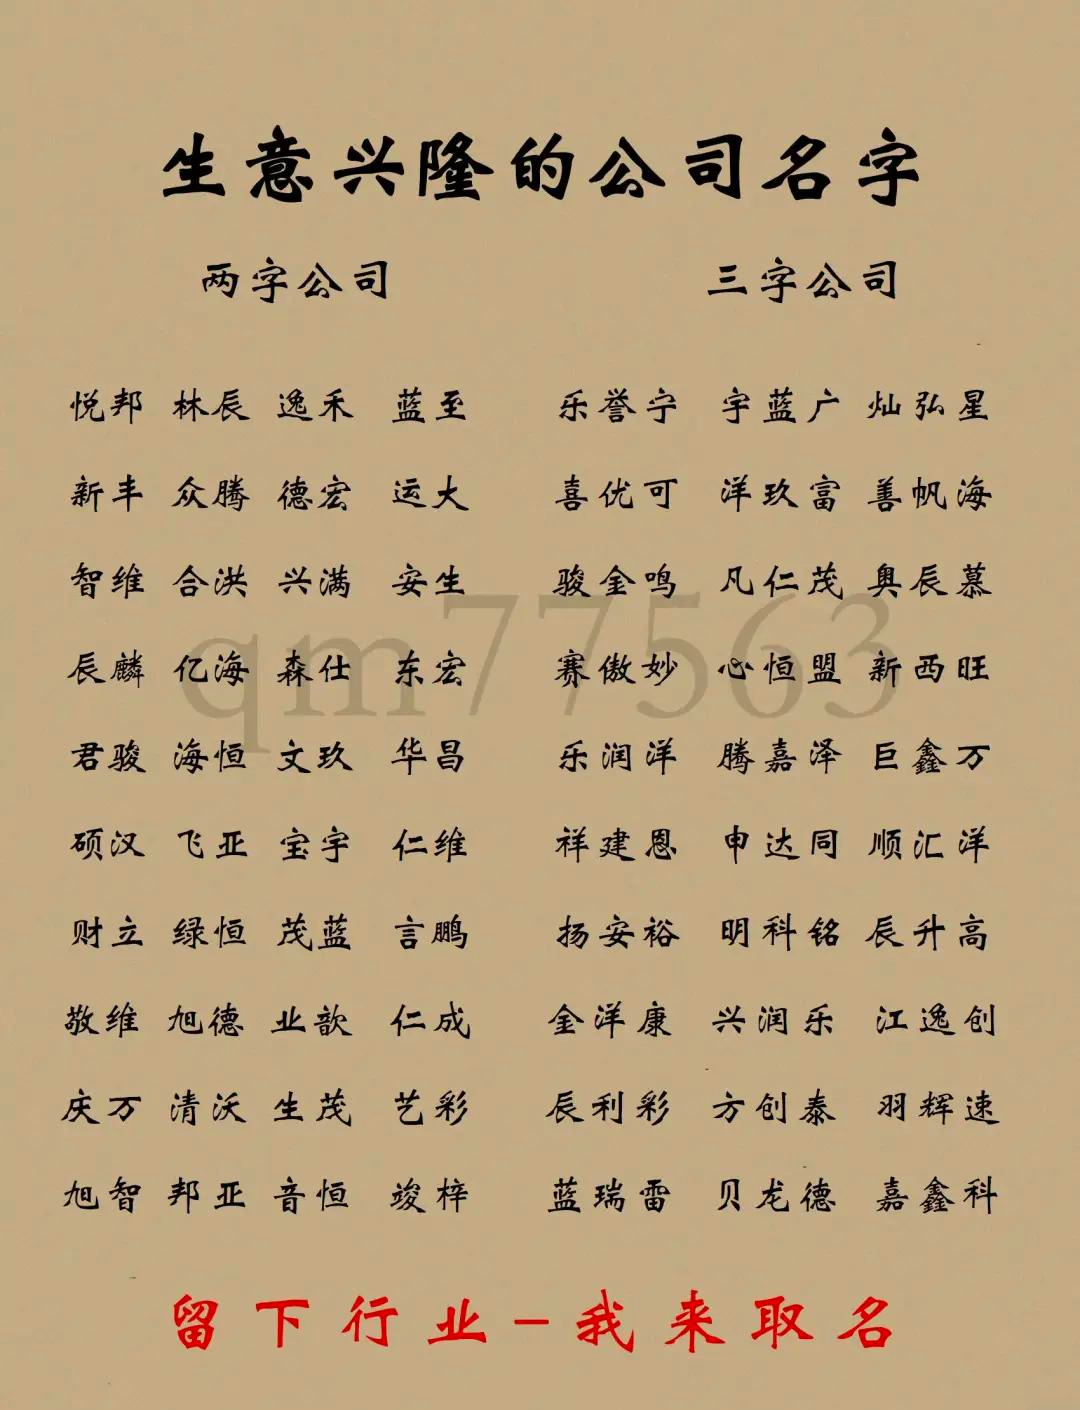 生意兴隆的公司名字
两字公司 三字公司
悦邦 林辰 逸禾 蓝至 乐誉宁 宇蓝广 灿弘星
新丰 众腾 德宏 运大 喜优可 洋玖富 善帆海
智维 合洪 兴满 安生 骏金鸣 凡仁茂 奥辰慕
qm77563
辰麟 亿海 森仕 东宏 赛傲妙 心恒盟 新西旺
君骏 海恒 文玖 华昌 乐润洋 腾嘉泽 巨鑫万
硕汉 飞亚 宝宇 仁维 祥建恩 申达同 顺汇洋
财立 绿恒 茂蓝 言鹏 扬安裕 明科铭 辰升高
敬维 旭德 业歆 仁成 金洋康 兴润乐 江逸创
庆万 清沃 生茂 艺彩 辰利彩 方创泰 羽辉速
旭智 邦亚 音恒 竣梓 蓝瑞雷 贝龙德 嘉鑫科
留下行业-我来取名